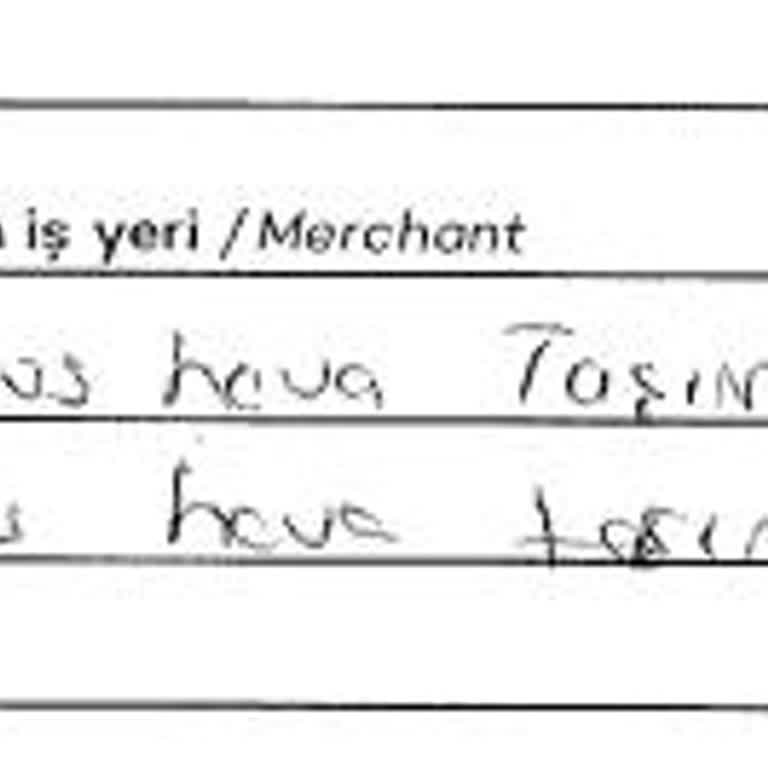 iş yeri / Merchant
us hava Taşın
s hava taşın